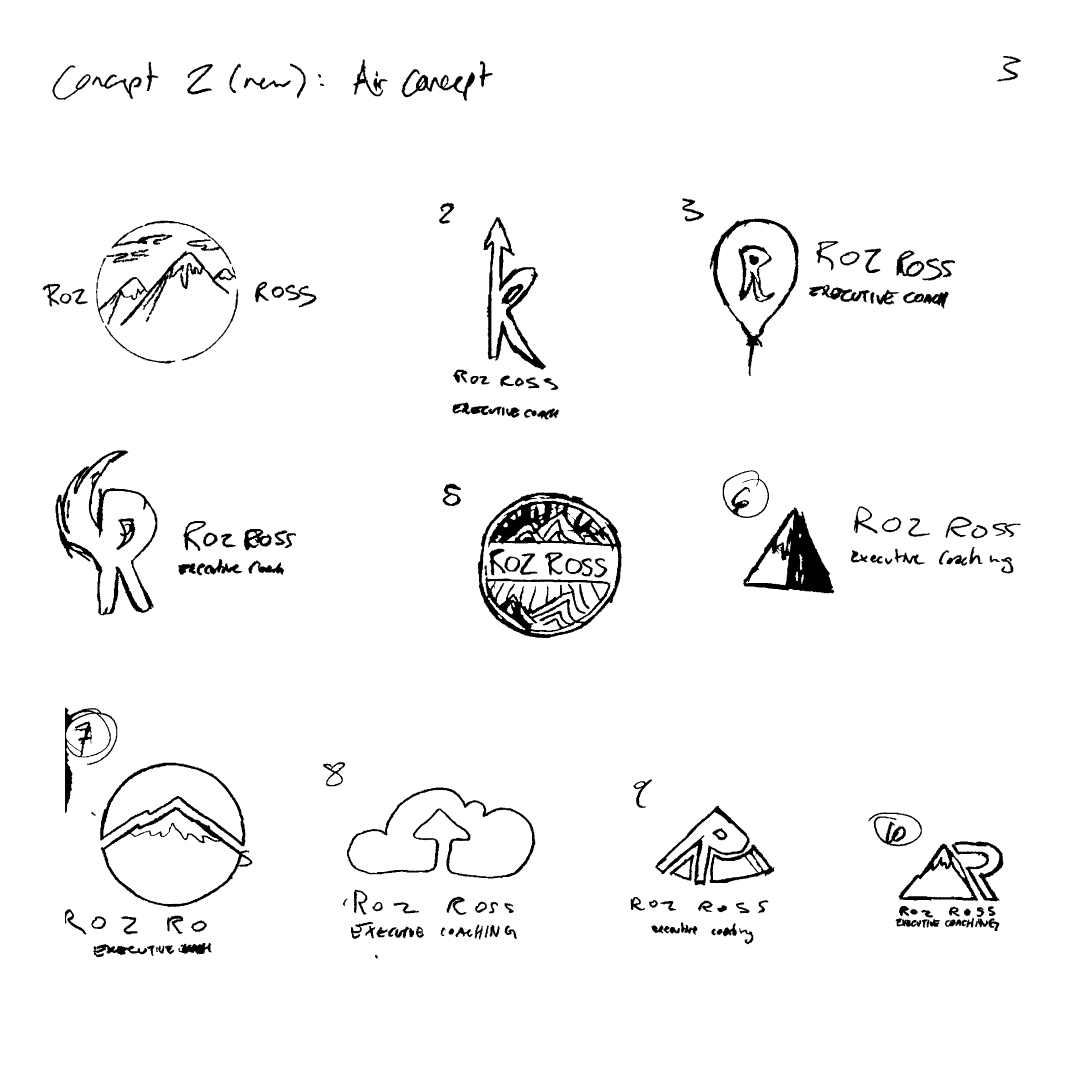 Concept 2 (new): Air Concept
3
ROZ
ROSS
2
ROZ ROSS
EXECUTIVE COACH
3
R
ROZ ROSS
EXECUTIVE COACH
R
ROZ ROSS
Executive Coach
5
ROZ ROSS
6
ROZ ROSS
Executive Coaching
7
ROZ RO
EXECUTIVE COACH
8
ROZ ROSS
EXECUTIVE COACHING
9
R
ROZ ROSS
executive coaching
10
R
ROZ ROSS
EXECUTIVE COACHING